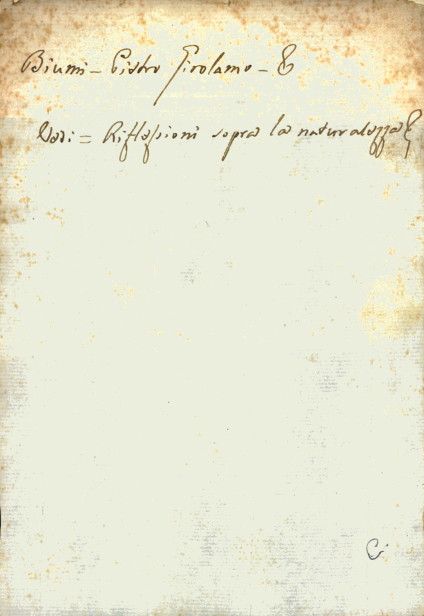 Biumi - Pietro Girolamo - &
Vedi = Riflessioni sopra la naturalezza &